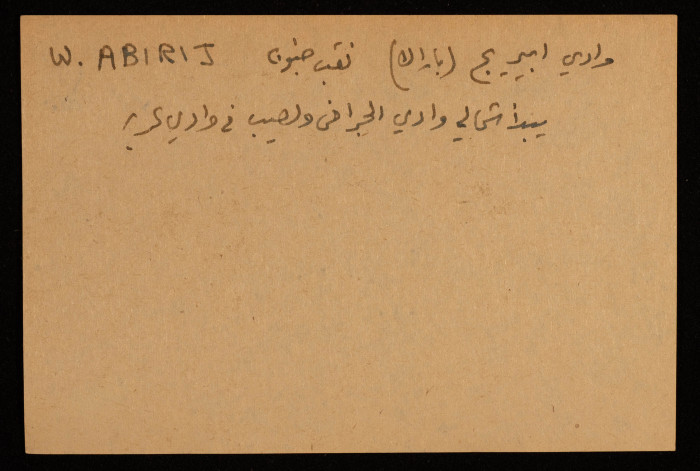 وادي ابيريج (باراك) نقب جنوب W. ABIRIJ
يبدأ شمالي وادي الجرافي ويصب في وادي عربه